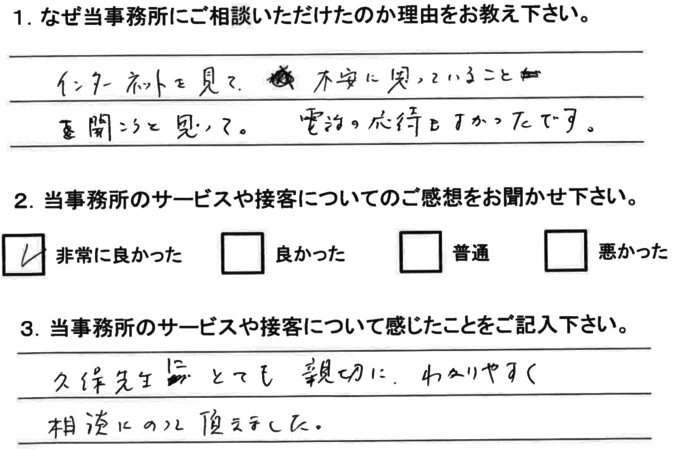 1. なぜ当事務所にご相談いただけたのか理由をお教え下さい。
インターネットを見て、不安に思っていること
を聞こうと思って。電話の応待もよかったです。
2. 当事務所のサービスや接客についてのご感想をお聞かせ下さい。
レ 非常に良かった 良かった 普通 悪かった
3. 当事務所のサービスや接客について感じたことをご記入下さい。
久保先生にとても親切に、わかりやすく
相談にのって頂えました。